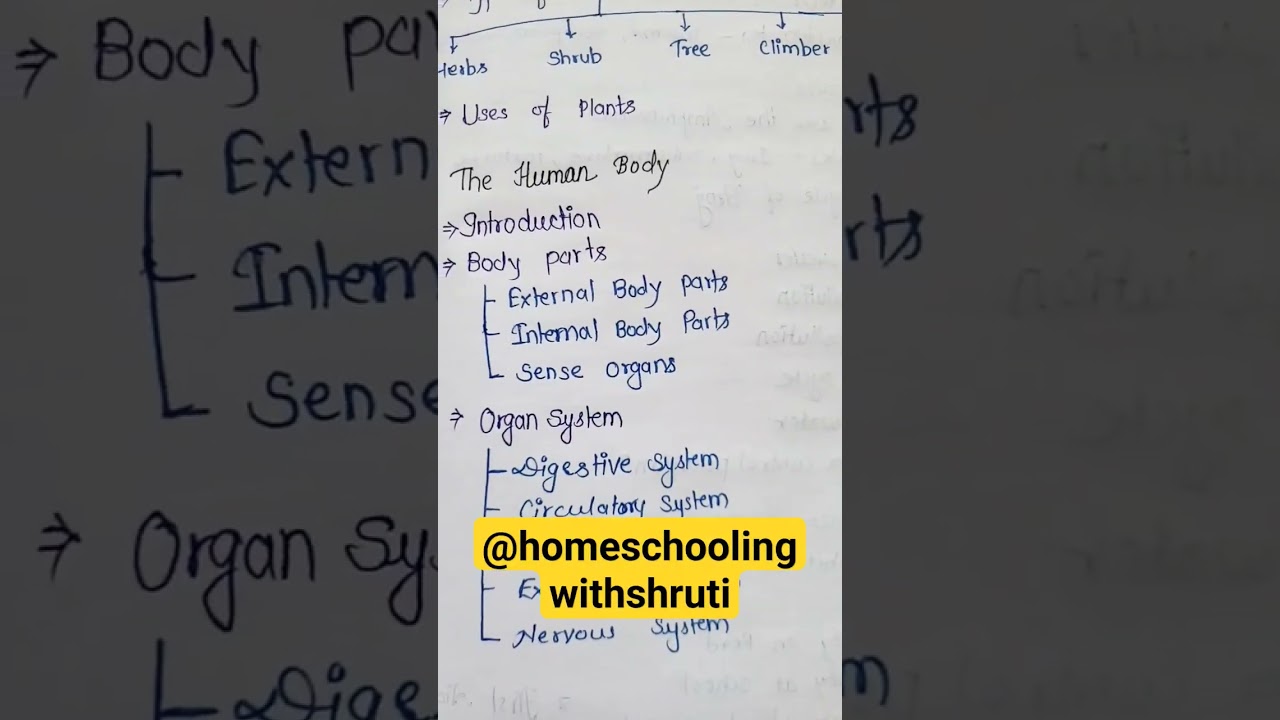 Herbs Shrub Tree Climber
⇒ Uses of plants
The Human Body
⇒ Introduction
⇒ Body parts
External Body parts
Internal Body Parts
Sense organs
⇒ Organ System
Digestive System
Circulatory System
@homeschooling
withshruti
Nervous System